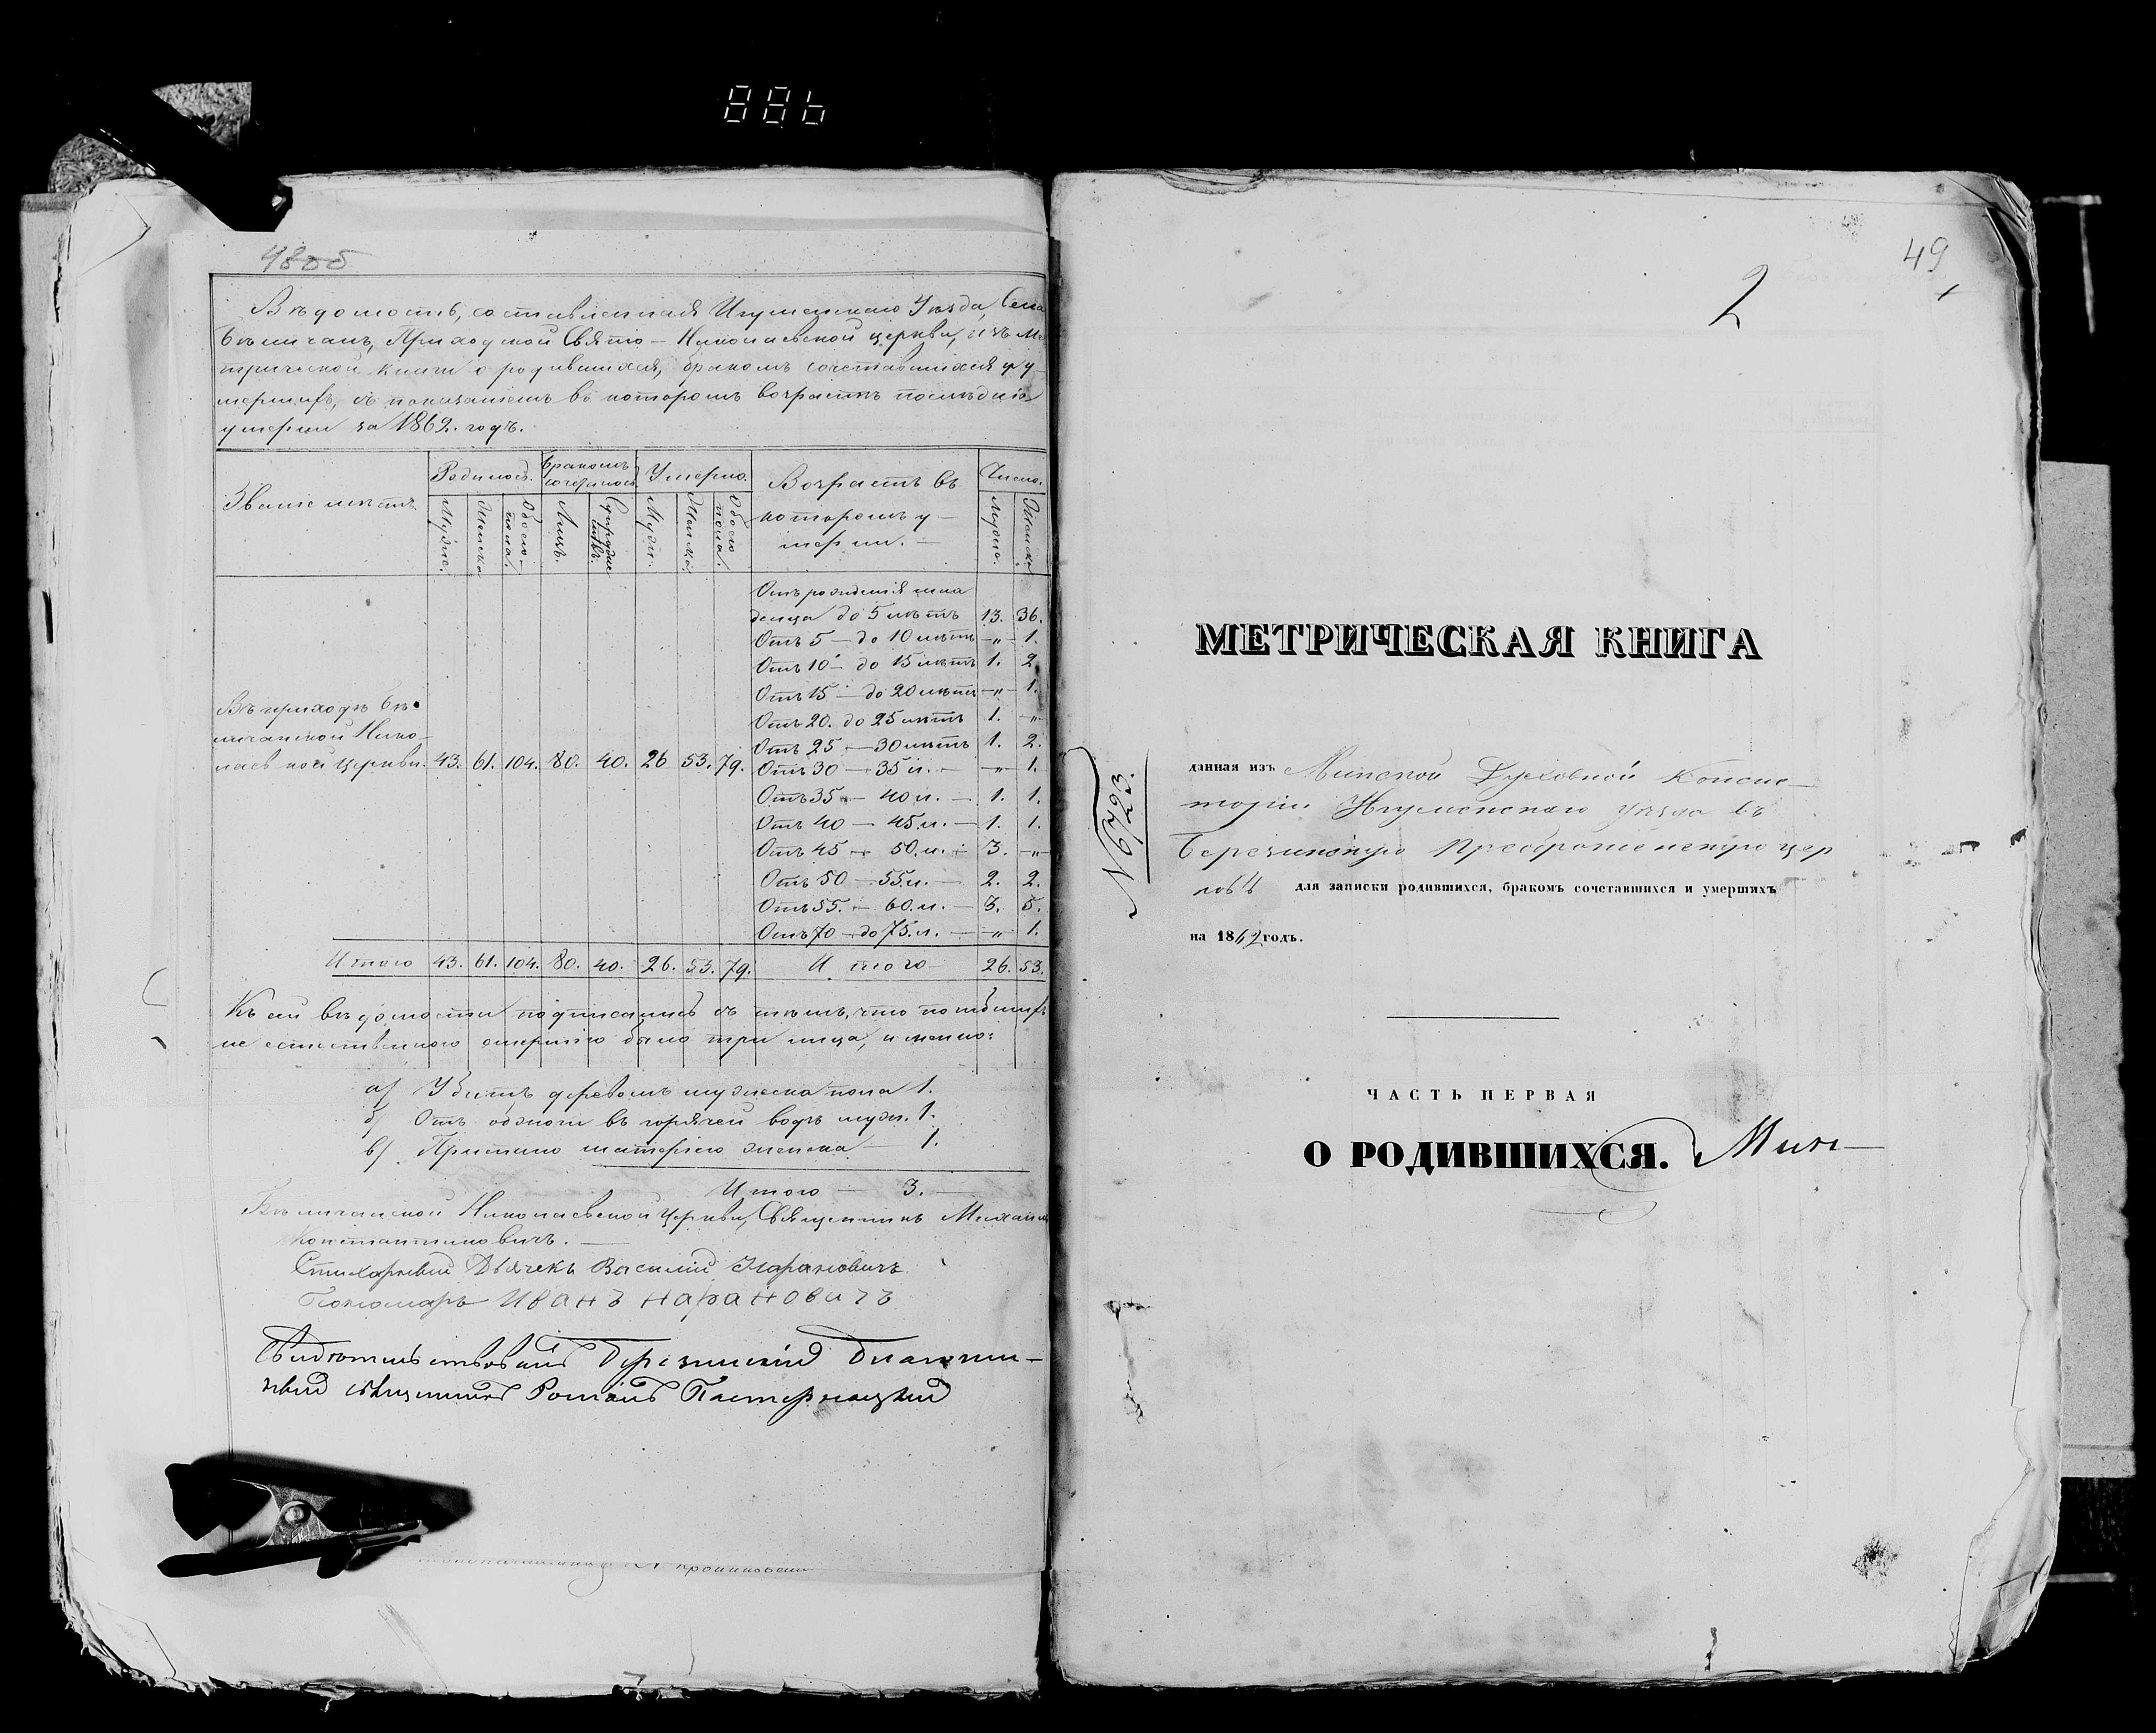 886
48об
Вѣдомость, составленная Игуменскаго Уѣзда, Села
Бѣличанъ, Приходской Свято-Николаевской церкви, изъ Ме
трической книги о родившихся, бракомъ сочетавшихся и у
мершихъ, съ показаніемъ въ которомъ возрастѣ послѣдніе
умерли за 1862. годъ.
Званіе мѣстъ. Родилось. Бракомъ сочеталось. Умерло. Возрастъ въ которомъ умерли. — Число.
Мужес. Женска Обоего пола. Лицъ. Супружествъ. Муж. Женска Обоего пола. Мужес. Женска
Въ приходѣ Бѣ-
личанской Нико-
лаевской церкви. 43. 61. 104. 80. 40. 26 53. 79.
Отъ рожденія мла
денца до 5 лѣтъ 13. 36.
Отъ 5 — до 10 лѣтъ —„— 1.
Отъ 10 — до 15 лѣтъ 1. 2
Отъ 15 — до 20 лѣтъ —„— 1.
Отъ 20. до 25 лѣтъ 1. —„—
Отъ 25 — 30 лѣтъ 1. 2.
Отъ 30 — 35 л. — —„— 1.
Отъ 35 — 40 л. — 1. 1.
Отъ 40 — 45 л. — 1. 1.
Отъ 45 — 50. л. — 3. —„—
Отъ 50 — 55 л. — 2. 2.
Отъ 55. — 60. л. — 3. 5.
Отъ 70 — до 75. л. — —„— 1.
Итого 43. 61. 104. 80. 40. 26. 53. 79. Итого 26. 53.
Къ сей вѣдомости подписались съ тѣмъ, что погибшихъ
не естественною смертію было три лица, именно:
а) Убитъ деревомъ мужеска пола 1.
б) Отъ обжоги въ горячей водѣ муж. 1.
в) Приспано матерію женска — 1.
Итого — 3. —
Бѣличанской Николаевской Церкви, Священникъ Михаилъ
Константиновичъ. —
Стихарный Дьячекъ Василій Нарановичъ
Пономарь Иванъ Нарановичъ
Свидѣтельствовалъ Березинскій Благочин-
ный священникъ Романъ Пастернацкій
2
49
МЕТРИЧЕСКАЯ КНИГА
N 6723.
данная изъ Минской Духовной Консис-
торіи Игуменскаго уѣзда въ
Березинскую Преображенскую цер
ковь для записки родившихся, бракомъ сочетавшихся и умершихъ
на 1862 годъ.
ЧАСТЬ ПЕРВАЯ
О РОДИВШИХСЯ. Мин—